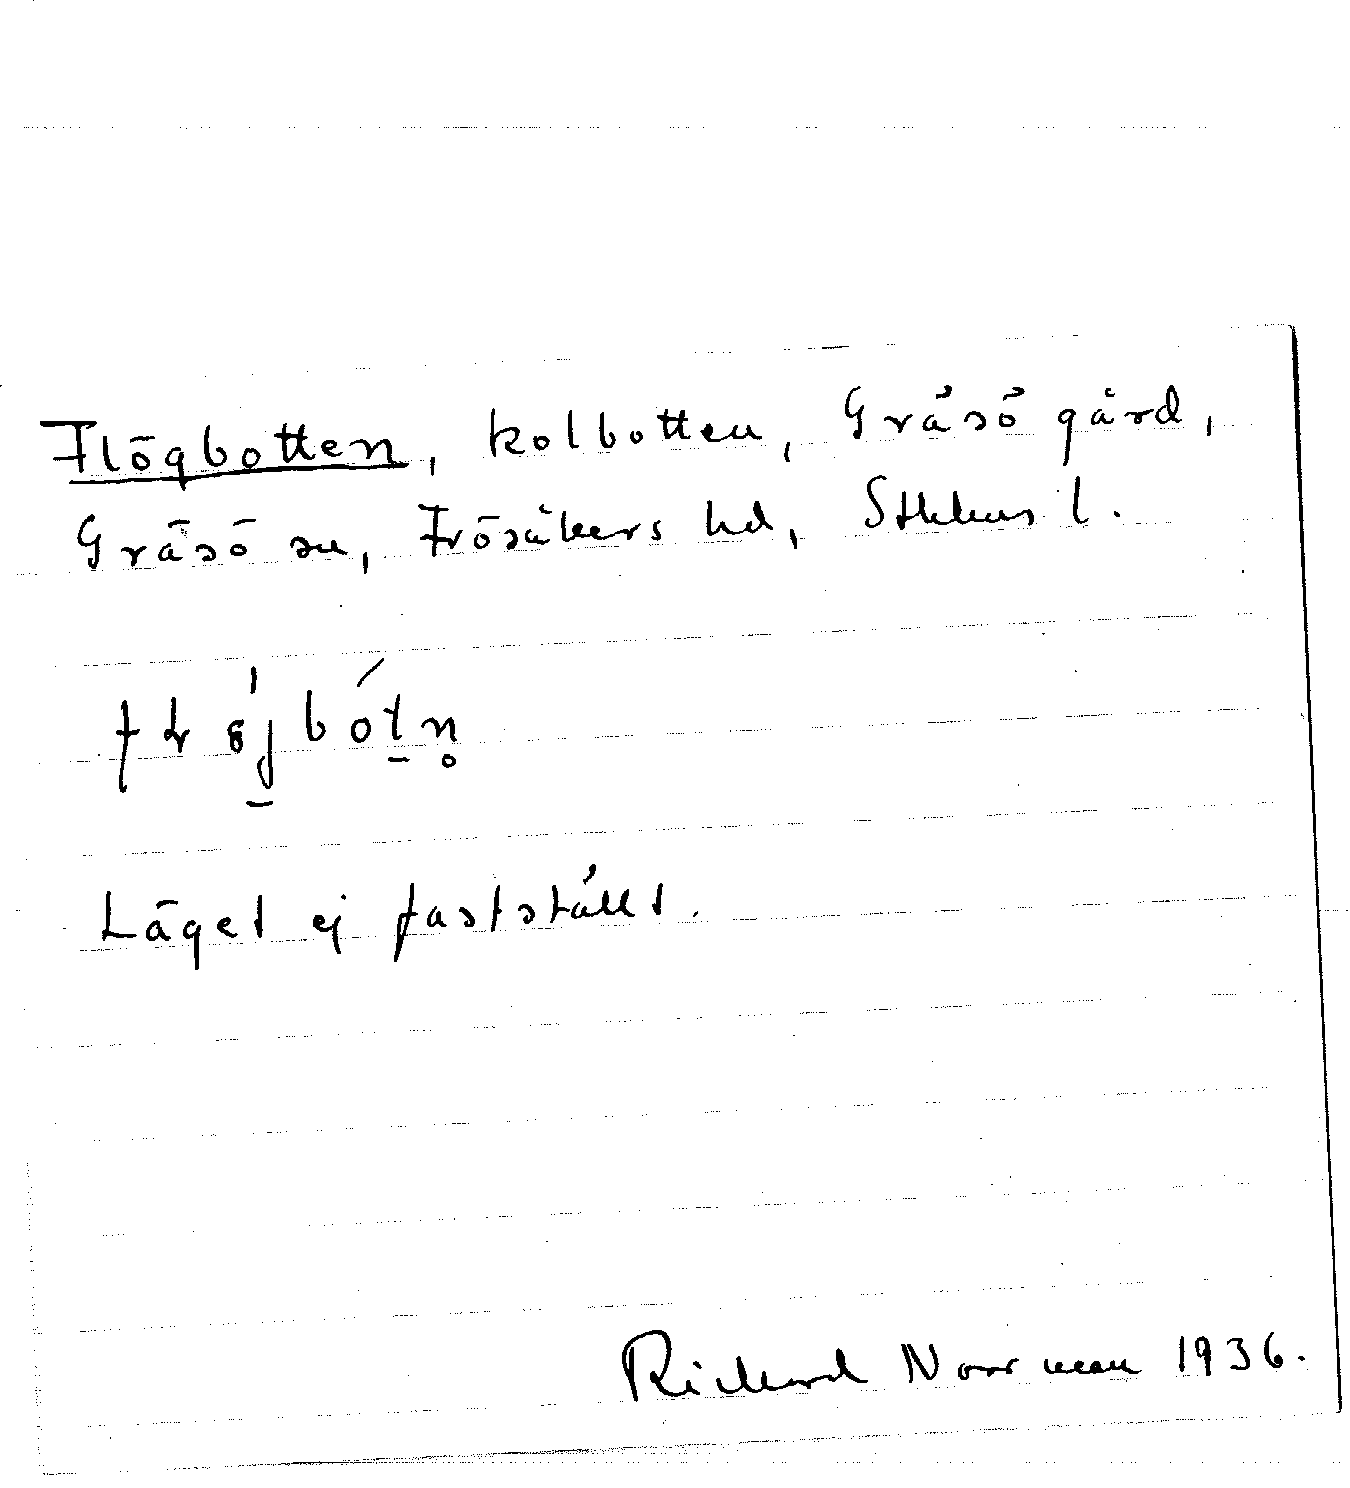 Flögbotten, kolbotten, Gräsö gård,
Gräsö sn, Frösåkers hd, Sthlms l.
Läget ej fastställt.
Richard Norrman 1936.